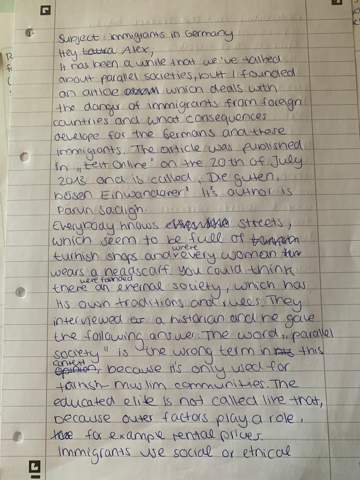 Subject: Immigrants in Germany
Hey Alex,
It has been a while that we've talked
about parallel societies, but I founded
an article which deals with
the danger of immigrants from foreign
countries and what consequences
develope for the Germans and these
immigrants. The article was published
in „Zeit Online" on the 20th of July
2018 and is called „Die guten,
bösen Einwanderer". It's author is
Parvin Sadigh
Everybody knows streets,
which seem to be full of
turkish shops and where every woman
wears a headscarf. You could think
there were founded an eternal society, which has
its own traditions and rules. They
interviewed a historian and he gave
the following answer. The word „parallel
society" is the wrong term in this
context, because it's only used for
turkish-muslim communities. The
educated elite is not called like that,
because outer factors play a role,
for example rental prices.
Immigrants use social or ethnical